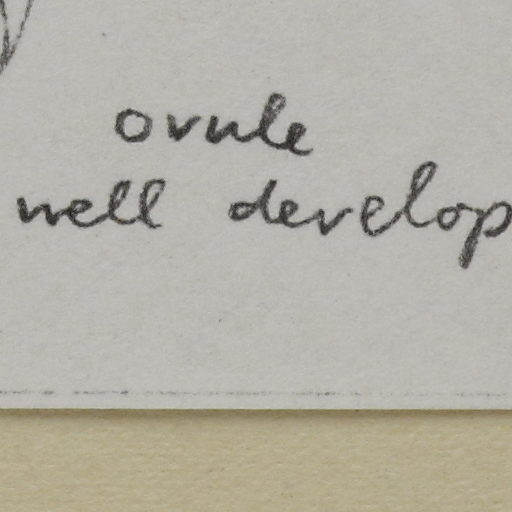 ovule
well develop